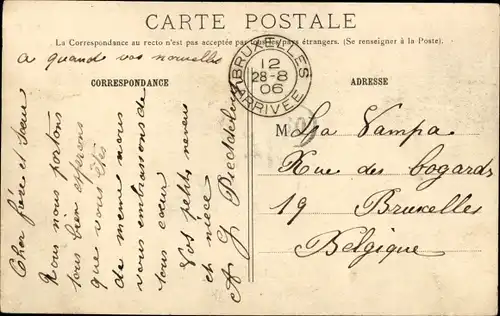 CARTE POSTALE
La Correspondance au recto n'est pas acceptée par tous les pays étrangers. (Se renseigner à la Poste).
a quand vos nouvelles
CORRESPONDANCE
ADRESSE
BRUXELLES
12
28-8
06
ARRIVEE
Cher frère et sœur
Nous nous portons
tous bien espérons
que vous êtes
de meme nous
vous embrassons de
tout coeur
Vos petits neveux
et niece
A G
M La Vampa
Rue des Bogards
19 Bruxelles
Belgique